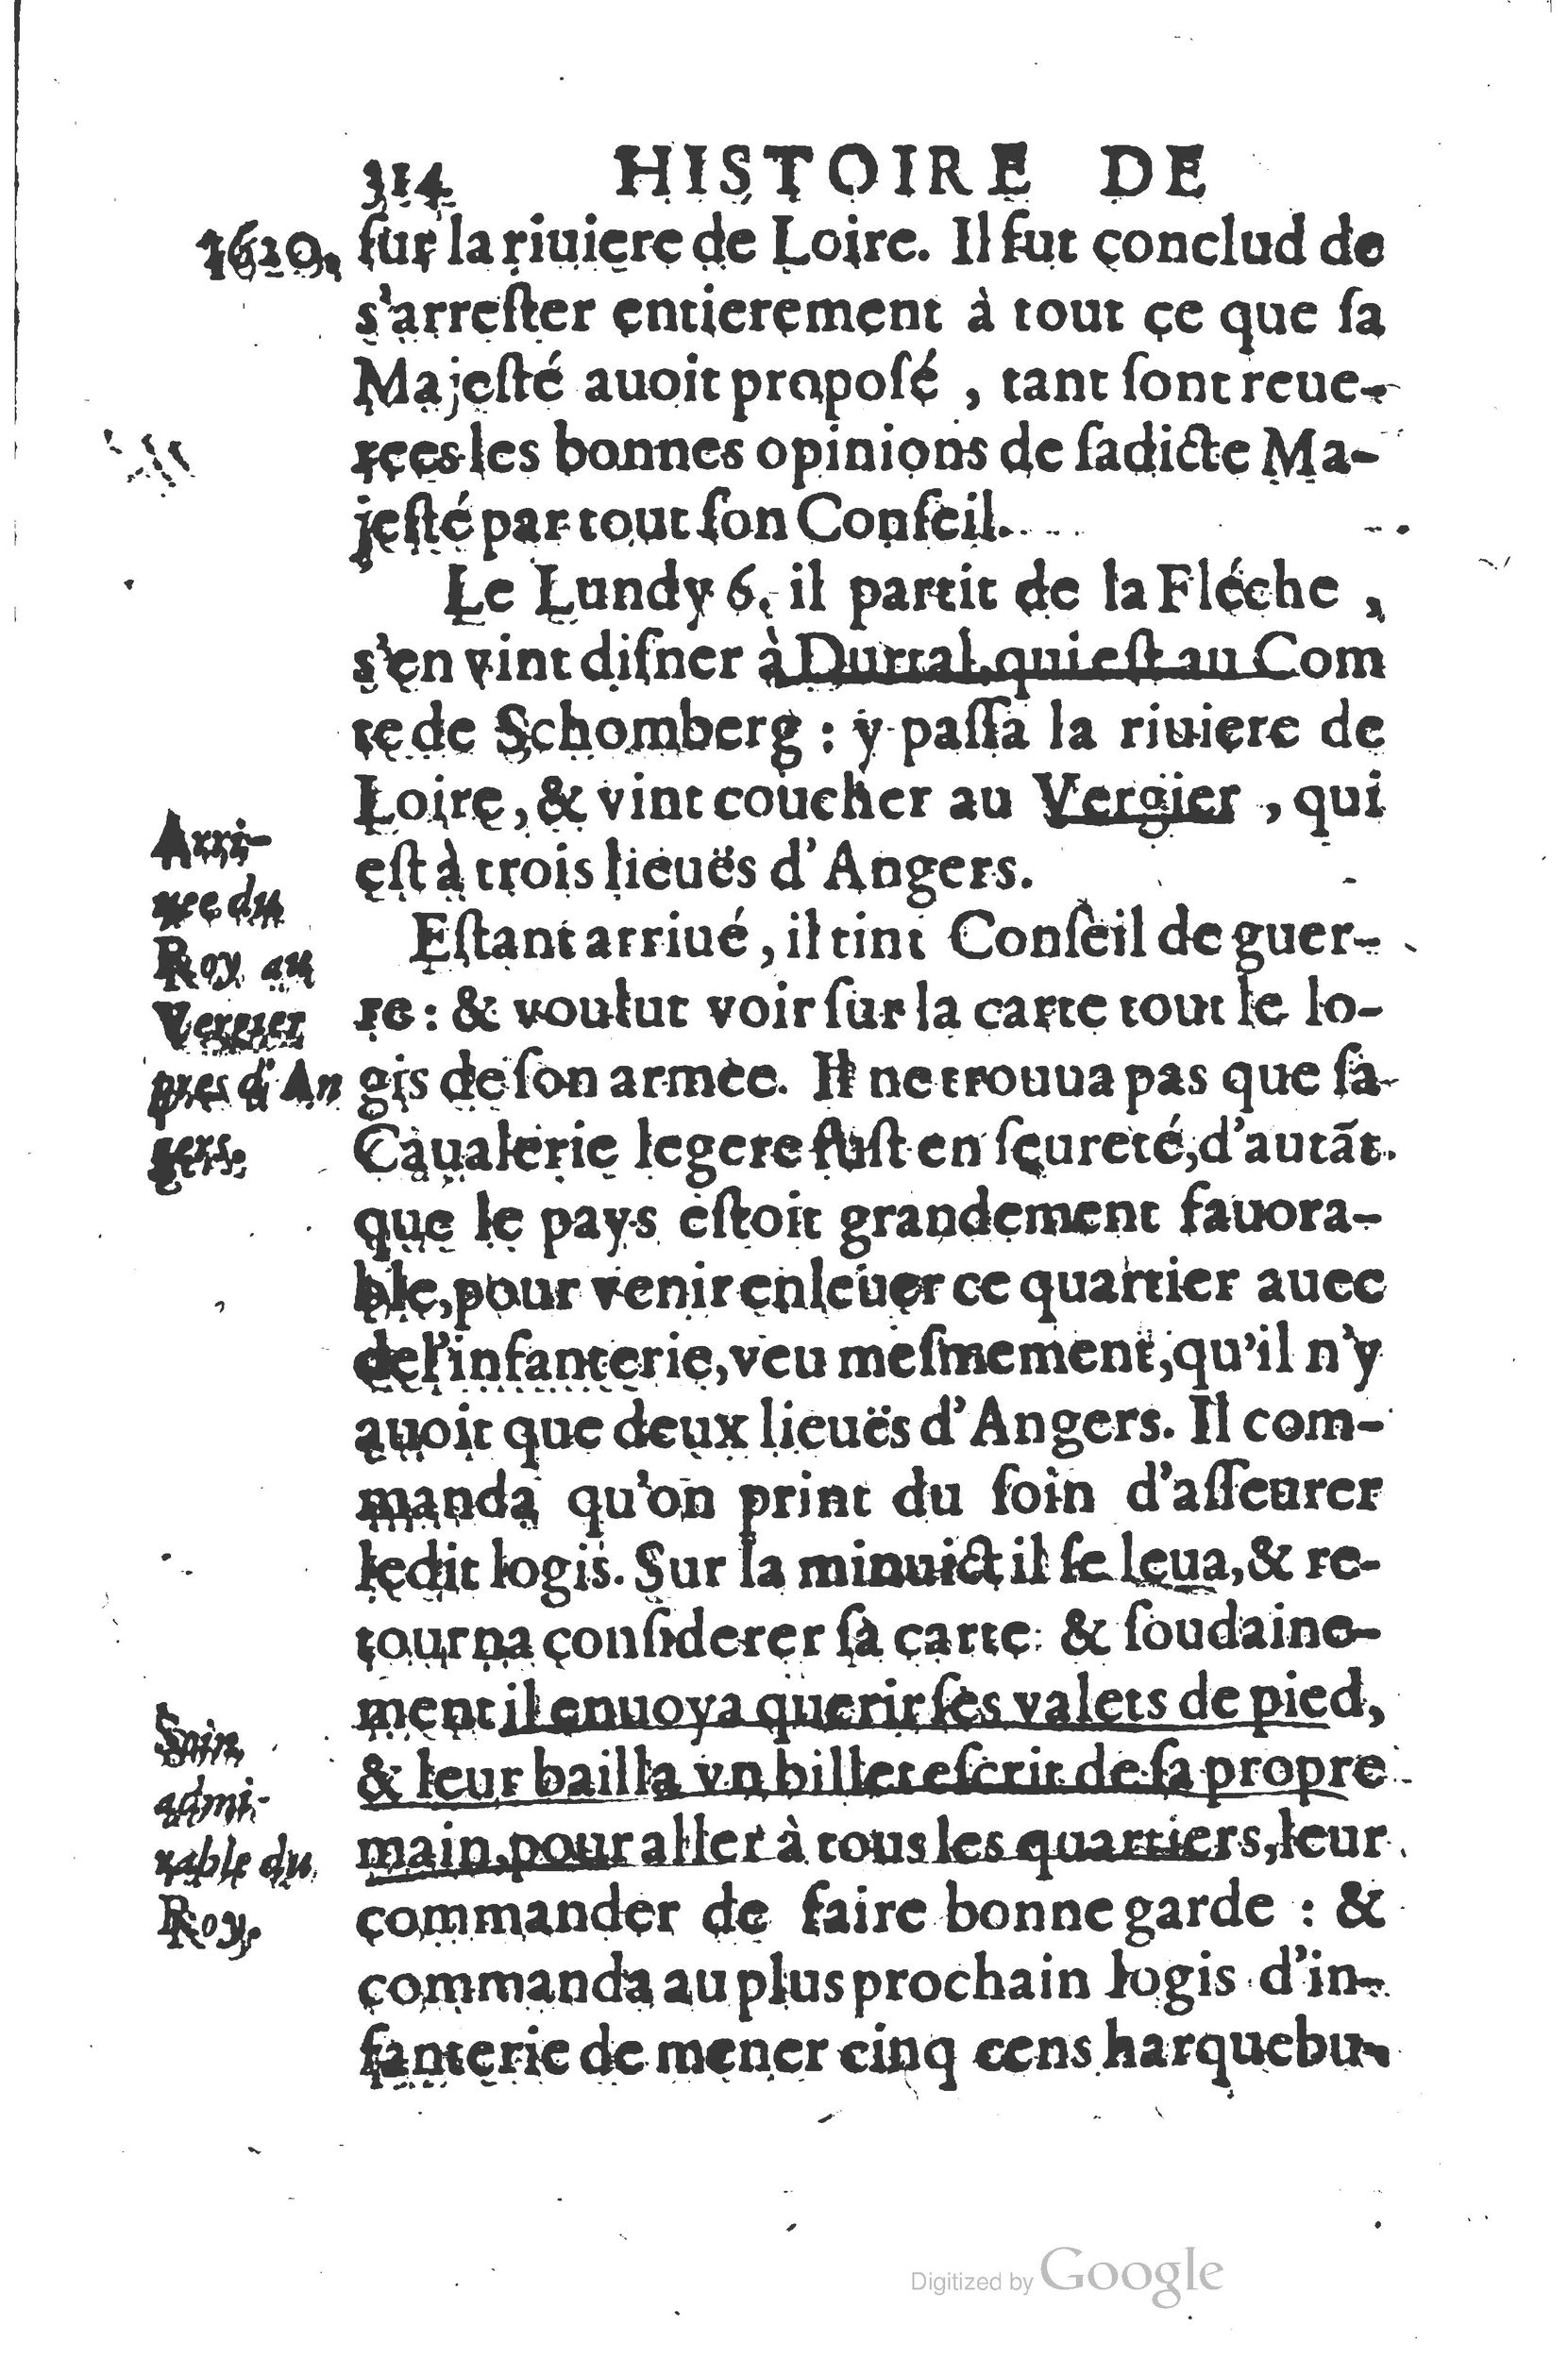 314 HISTOIRE DE
1620. ſur la riuiere de Loire. Il fut conclud de
s'arreſter entierement à tout ce que ſa
Majeſté auoit propoſé, tant ſont reue-
rees les bonnes opinions de ſadicte Ma-
jeſté par tout ſon Conſeil.
Le Lundy 6. il partit de la Fléche,
s'en vint diſner à Durtal, qui eſt au Com
te de Schomberg : y paſſa la riuiere de
Loire, & vint coucher au Vergier, qui
eſt à trois lieuës d'Angers.
Arri-
uee du
Roy au
Vergier
pres d'An
gers.
Eſtant arriué, il tint Conſeil de guer-
re : & voulut voir ſur la carte tout le lo-
gis de ſon armee. Il ne trouua pas que ſa
Caualerie legere fuſt en ſeureté, d'autãt
que le pays eſtoit grandement fauora-
ble, pour venir enleuer ce quartier auec
de l'infanterie, veu meſmement, qu'il n'y
auoit que deux lieuës d'Angers. Il com-
manda qu'on print du ſoin d'aſſeurer
ledit logis. Sur la minuict il ſe leua, & re-
tourna conſiderer ſa carte : & ſoudaine-
ment il enuoya querir ſes valets de pied,
& leur bailla vn billet eſcrit de ſa propre
main, pour aller à tous les quartiers, leur
commander de faire bonne garde : &
commanda au plus prochain logis d'in-
fanterie de mener cinq cens harquebu-
Soin
admi-
rable du
Roy.
Digitized by Google